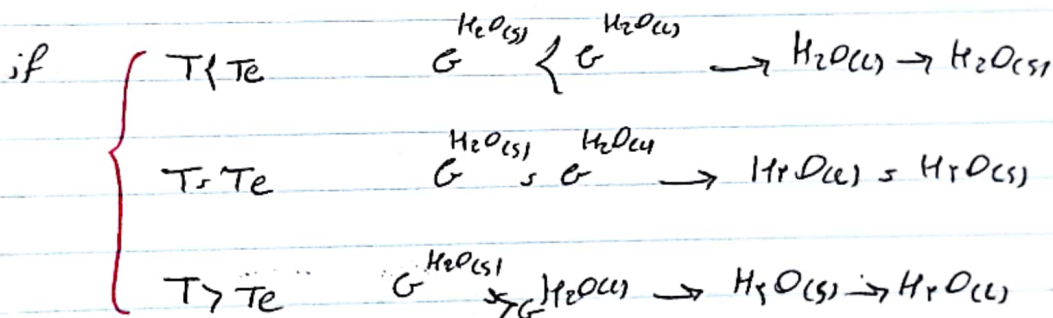 if { T < Te G^H2O(s) < G^H2O(l) → H2O(l) → H2O(s)
T = Te G^H2O(s) = G^H2O(l) → H2O(l) = H2O(s)
T > Te G^H2O(s) > G^H2O(l) → H2O(s) → H2O(l)